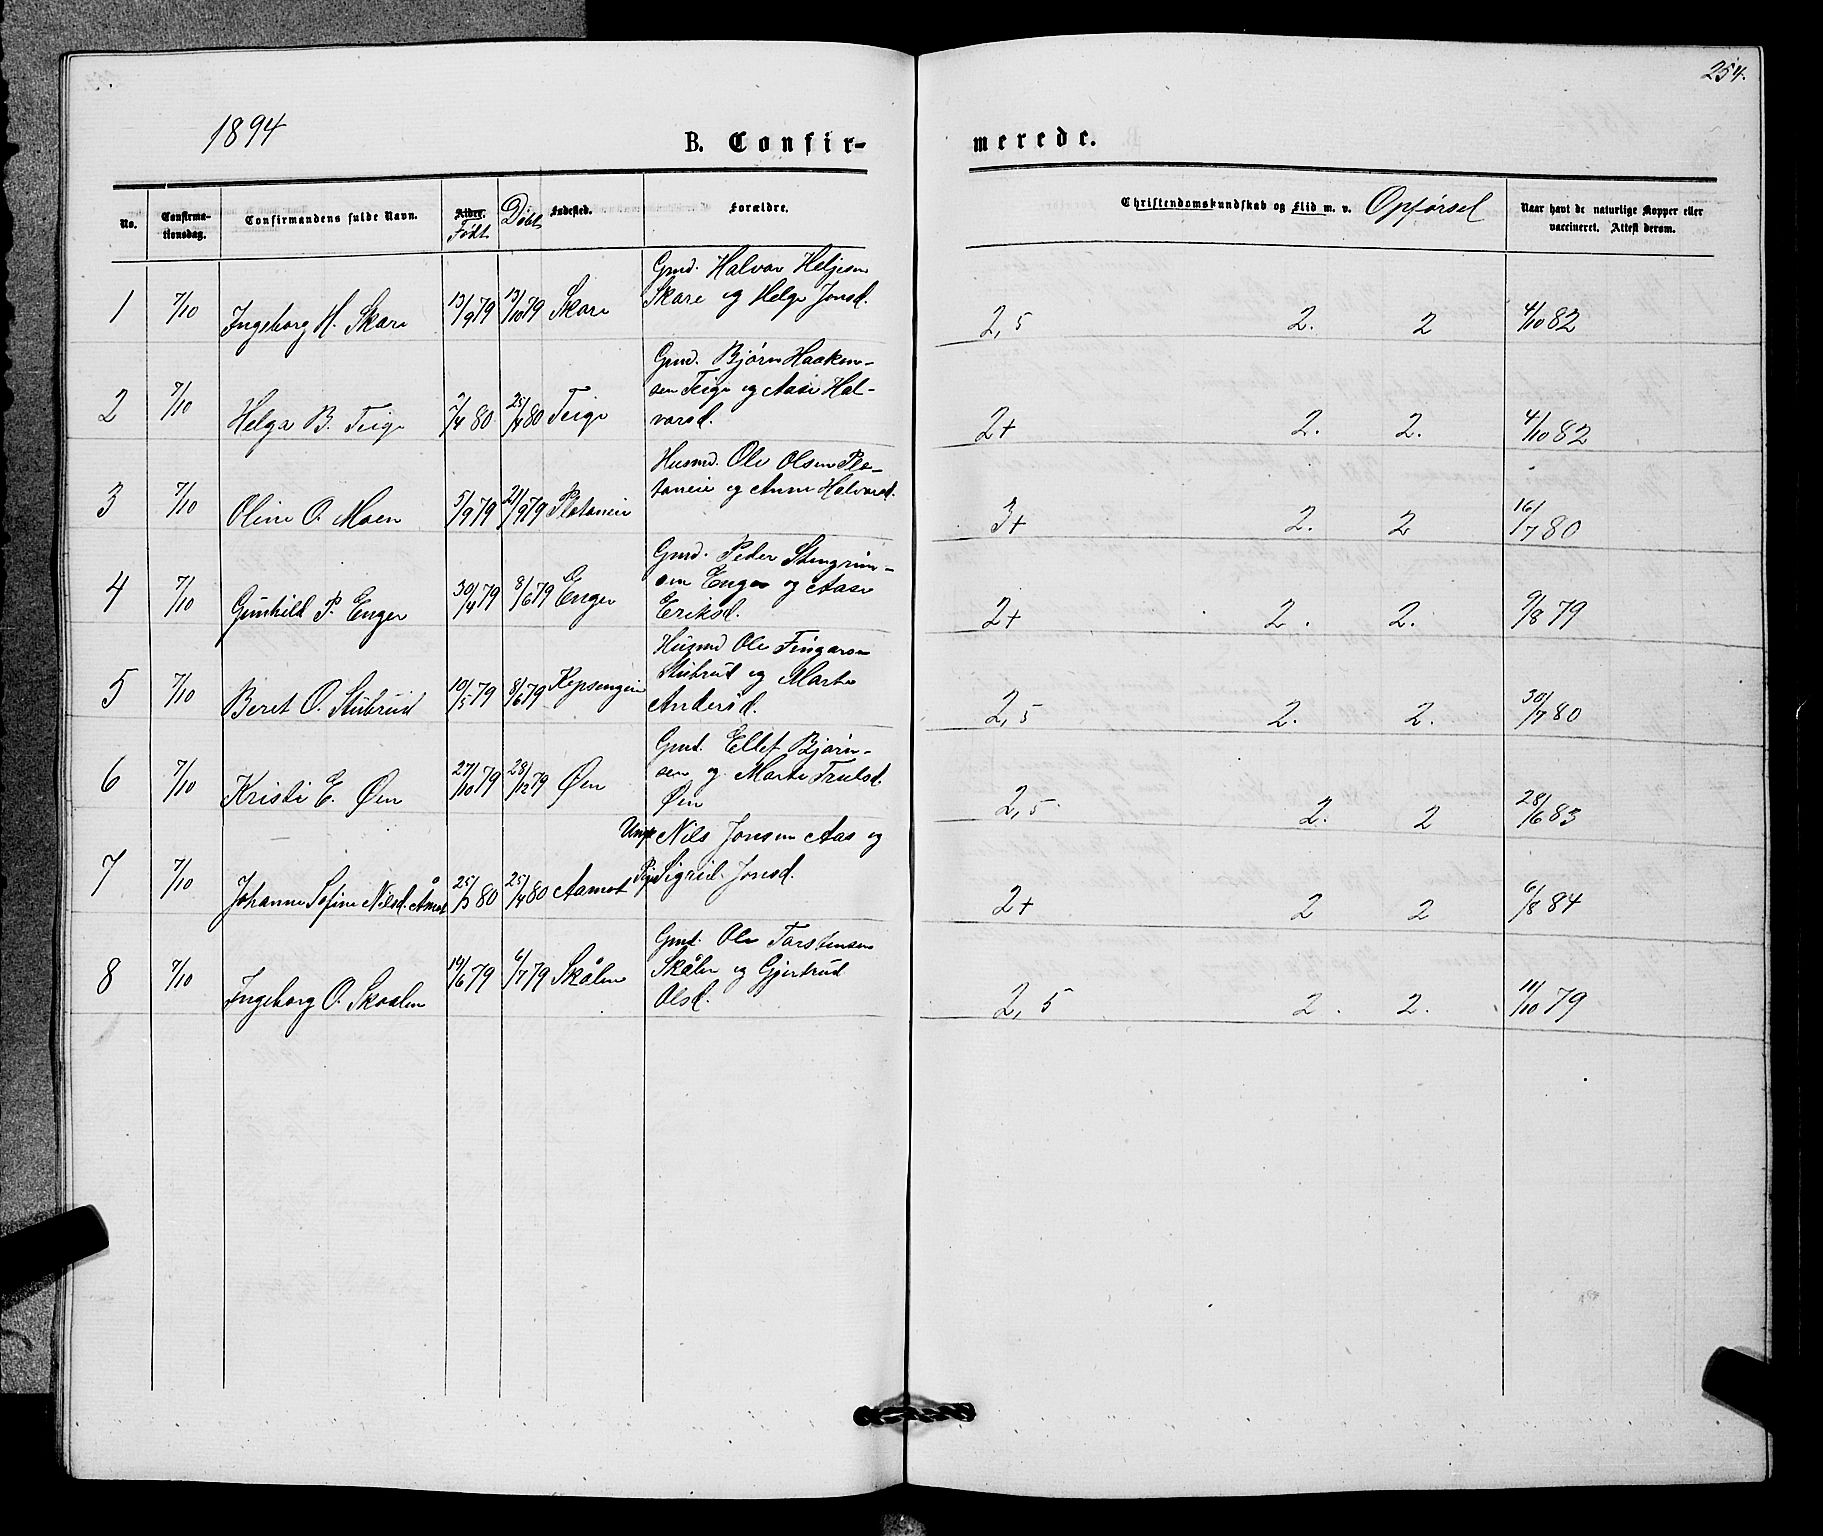 254.
1894
B. Confir-merede.
No. Confirma-tionsdag. Confirmandens fulde Navn. Alder. Født Døbt Fødested. Forældre. Christendomskundskab og Flid m. v. Opførsel Naar havt de naturlige Kopper eller vaccineret. Attest derom.
Gmd. Halvor Heljesen
Skare og Helge Jonsd.
1 7/10 Ingeborg H. Skare 13/9 79 13/10 79 Skare 2,5 2. 2 4/10 82
Gmd. Bjørn Haaken-
sen Teige og Aase Hal-
vorsd.
2 7/10 Helga B. Teige 7/4 80 25/4 80 Teige 2+ 2. 2. 4/10 82
Husmd. Ole Olsen Pla-
taneie og Anne Halvorsd.
3 7/10 Oline O. Moen 5/9 79 21/9 79 Plataneie 3+ 2. 2 16/7 80
Gmd. Peder Stengrim-
sen Enger og Aase
Eriksd.
4 7/10 Gunhild P. Enger 30/4 79 8/6 79 Enger 2+ 2. 2. 9/8 79
Husmd Ole Fingarsen
Stubrud og Marte
Andersd.
5 7/10 Beret O. Stubrud 10/5 79 8/6 79 Kopsengeie 2,5 2. 2. 30/7 80
Gmd. Ellef Bjørn-
sen og Marte Trulsd.
Øen
6 7/10 Kristi E. Øen 27/10 79 28/12 79 Øen 2,5. 2. 2 28/6 83
Ungk Nils Jonsen Aas og
Pige Sigrid Jonsd.
7 7/10 Johanne Sofine Nilsd. Åmot 25/3 80 25/4 80 Aamot 2+ 2 2 6/8 84
Gmd. Ole Torstensen
Skålen og Gjertrud
Olsd.
8 7/10 Ingeborg O. Skaalen 14/6 79 6/7 79 Skålen 2,5 2. 2. 11/10 79